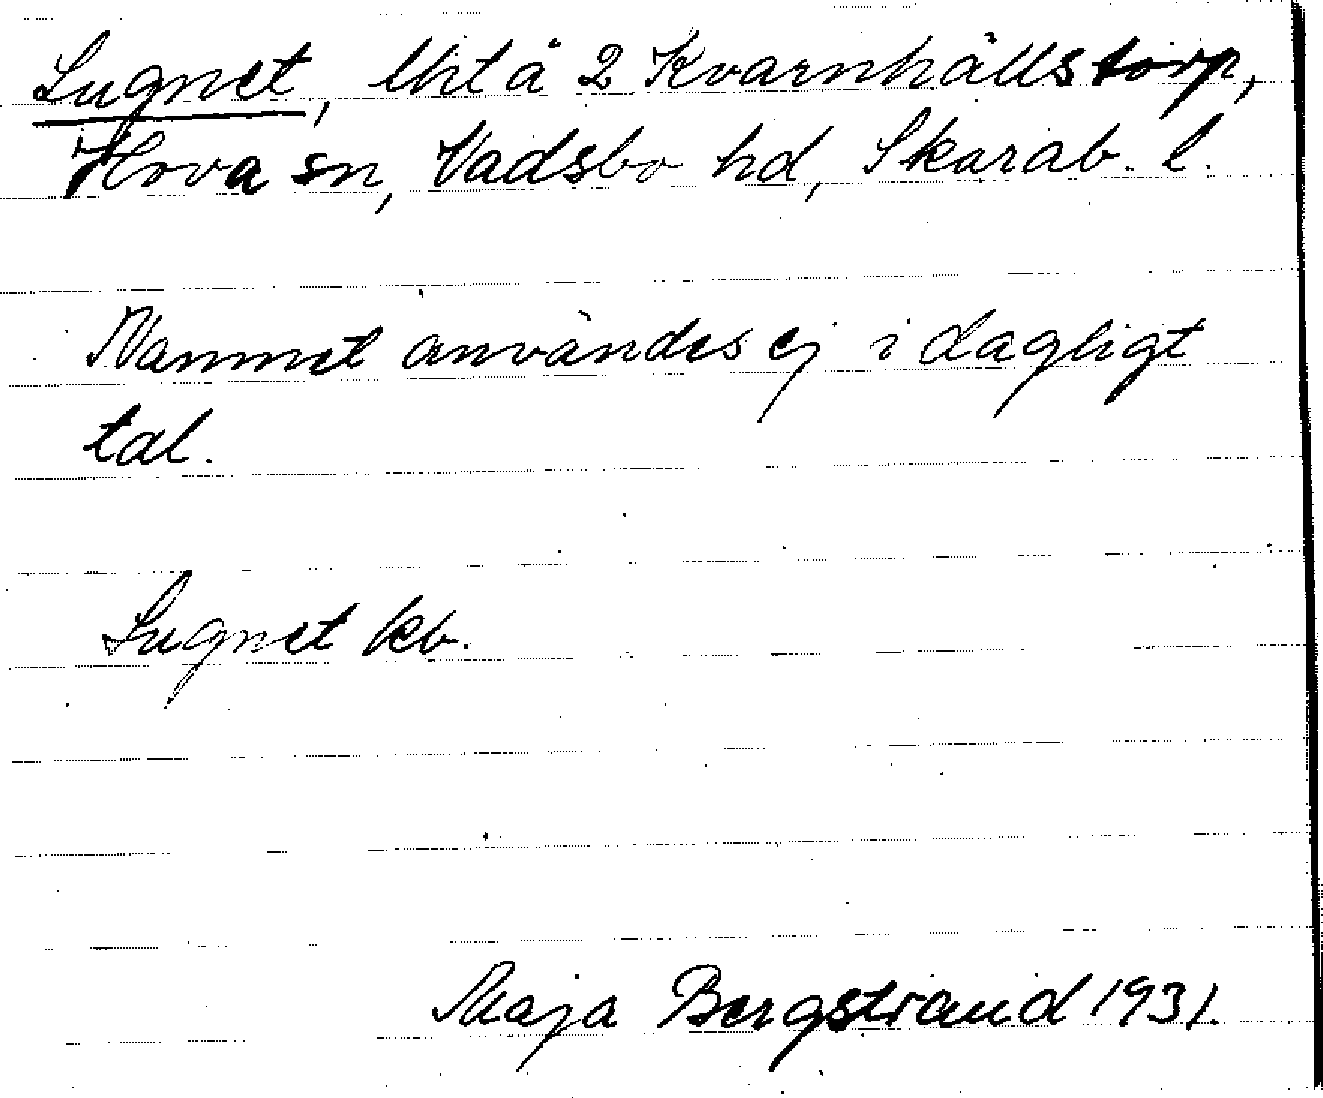 Lugnet, Urt å 2 Kvarnhällstorp,
Hova sn, Vadsbo hd, Skarab. l.
Namnet användes ej i dagligt
tal.
Lugnet kb.
Maja Bergstrand 1931.